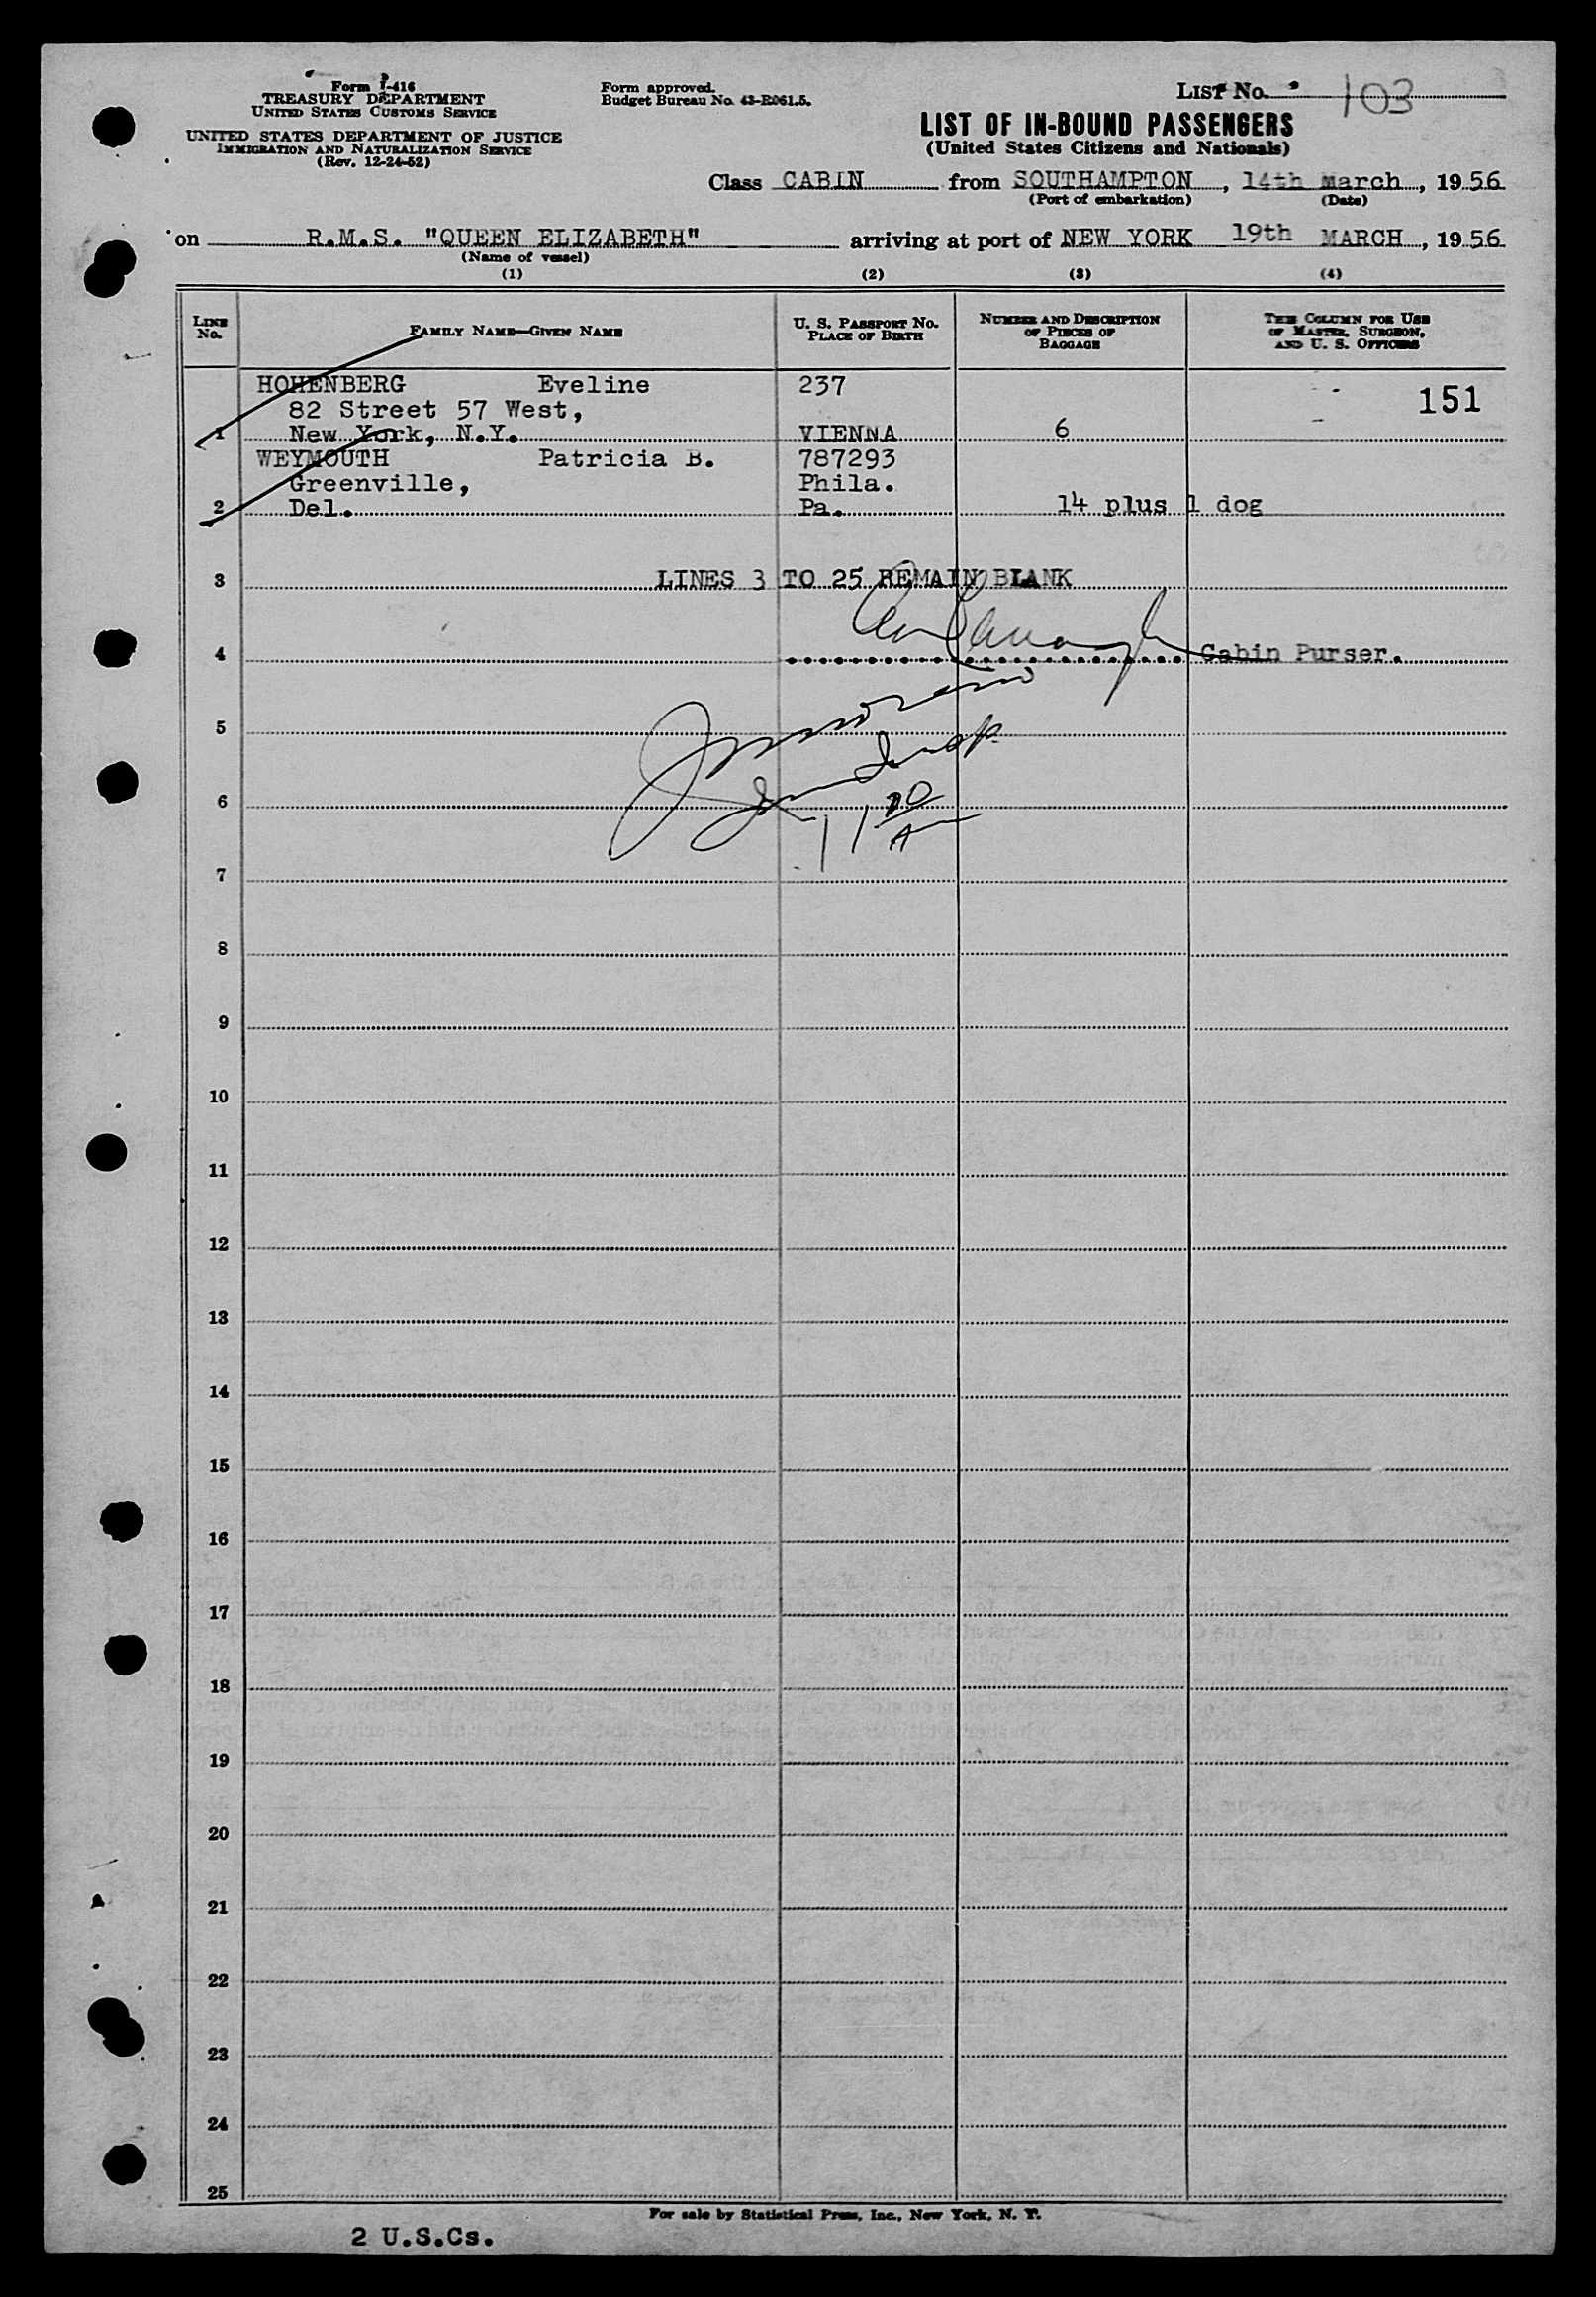 Form I-416
TREASURY DEPARTMENT
UNITED STATES CUSTOMS SERVICE
UNITED STATES DEPARTMENT OF JUSTICE
IMMIGRATION AND NATURALIZATION SERVICE
(Rev. 12-24-52)
Form approved.
Budget Bureau No. 43-R061.5.
LIST No. 103
LIST OF IN-BOUND PASSENGERS
(United States Citizens and Nationals)
Class CABIN from SOUTHAMPTON, 14th March, 1956
(Port of embarkation) (Date)
on R.M.S. "QUEEN ELIZABETH" arriving at port of NEW YORK 19th MARCH, 1956
(Name of vessel)
(1) (2) (3) (4)
LINE No. FAMILY NAME—GIVEN NAME U. S. PASSPORT No. PLACE OF BIRTH NUMBER AND DESCRIPTION OF PIECES OF BAGGAGE THIS COLUMN FOR USE OF MASTER, SURGEON, AND U. S. OFFICERS
HOHENBERG Eveline 237 151
82 Street 57 West,
1 New York, N.Y. VIENNA 6
WEYMOUTH Patricia B. 787293
Greenville, Phila.
2 Del. Pa. 14 plus 1 dog
3 LINES 3 TO 25 REMAIN BLANK
4 Cabin Purser.
5
6
11 20 A
7
8
9
10
11
12
13
14
15
16
17
18
19
20
21
22
23
24
25
For sale by Statistical Press, Inc., New York, N. Y.
2 U.S.Cs.